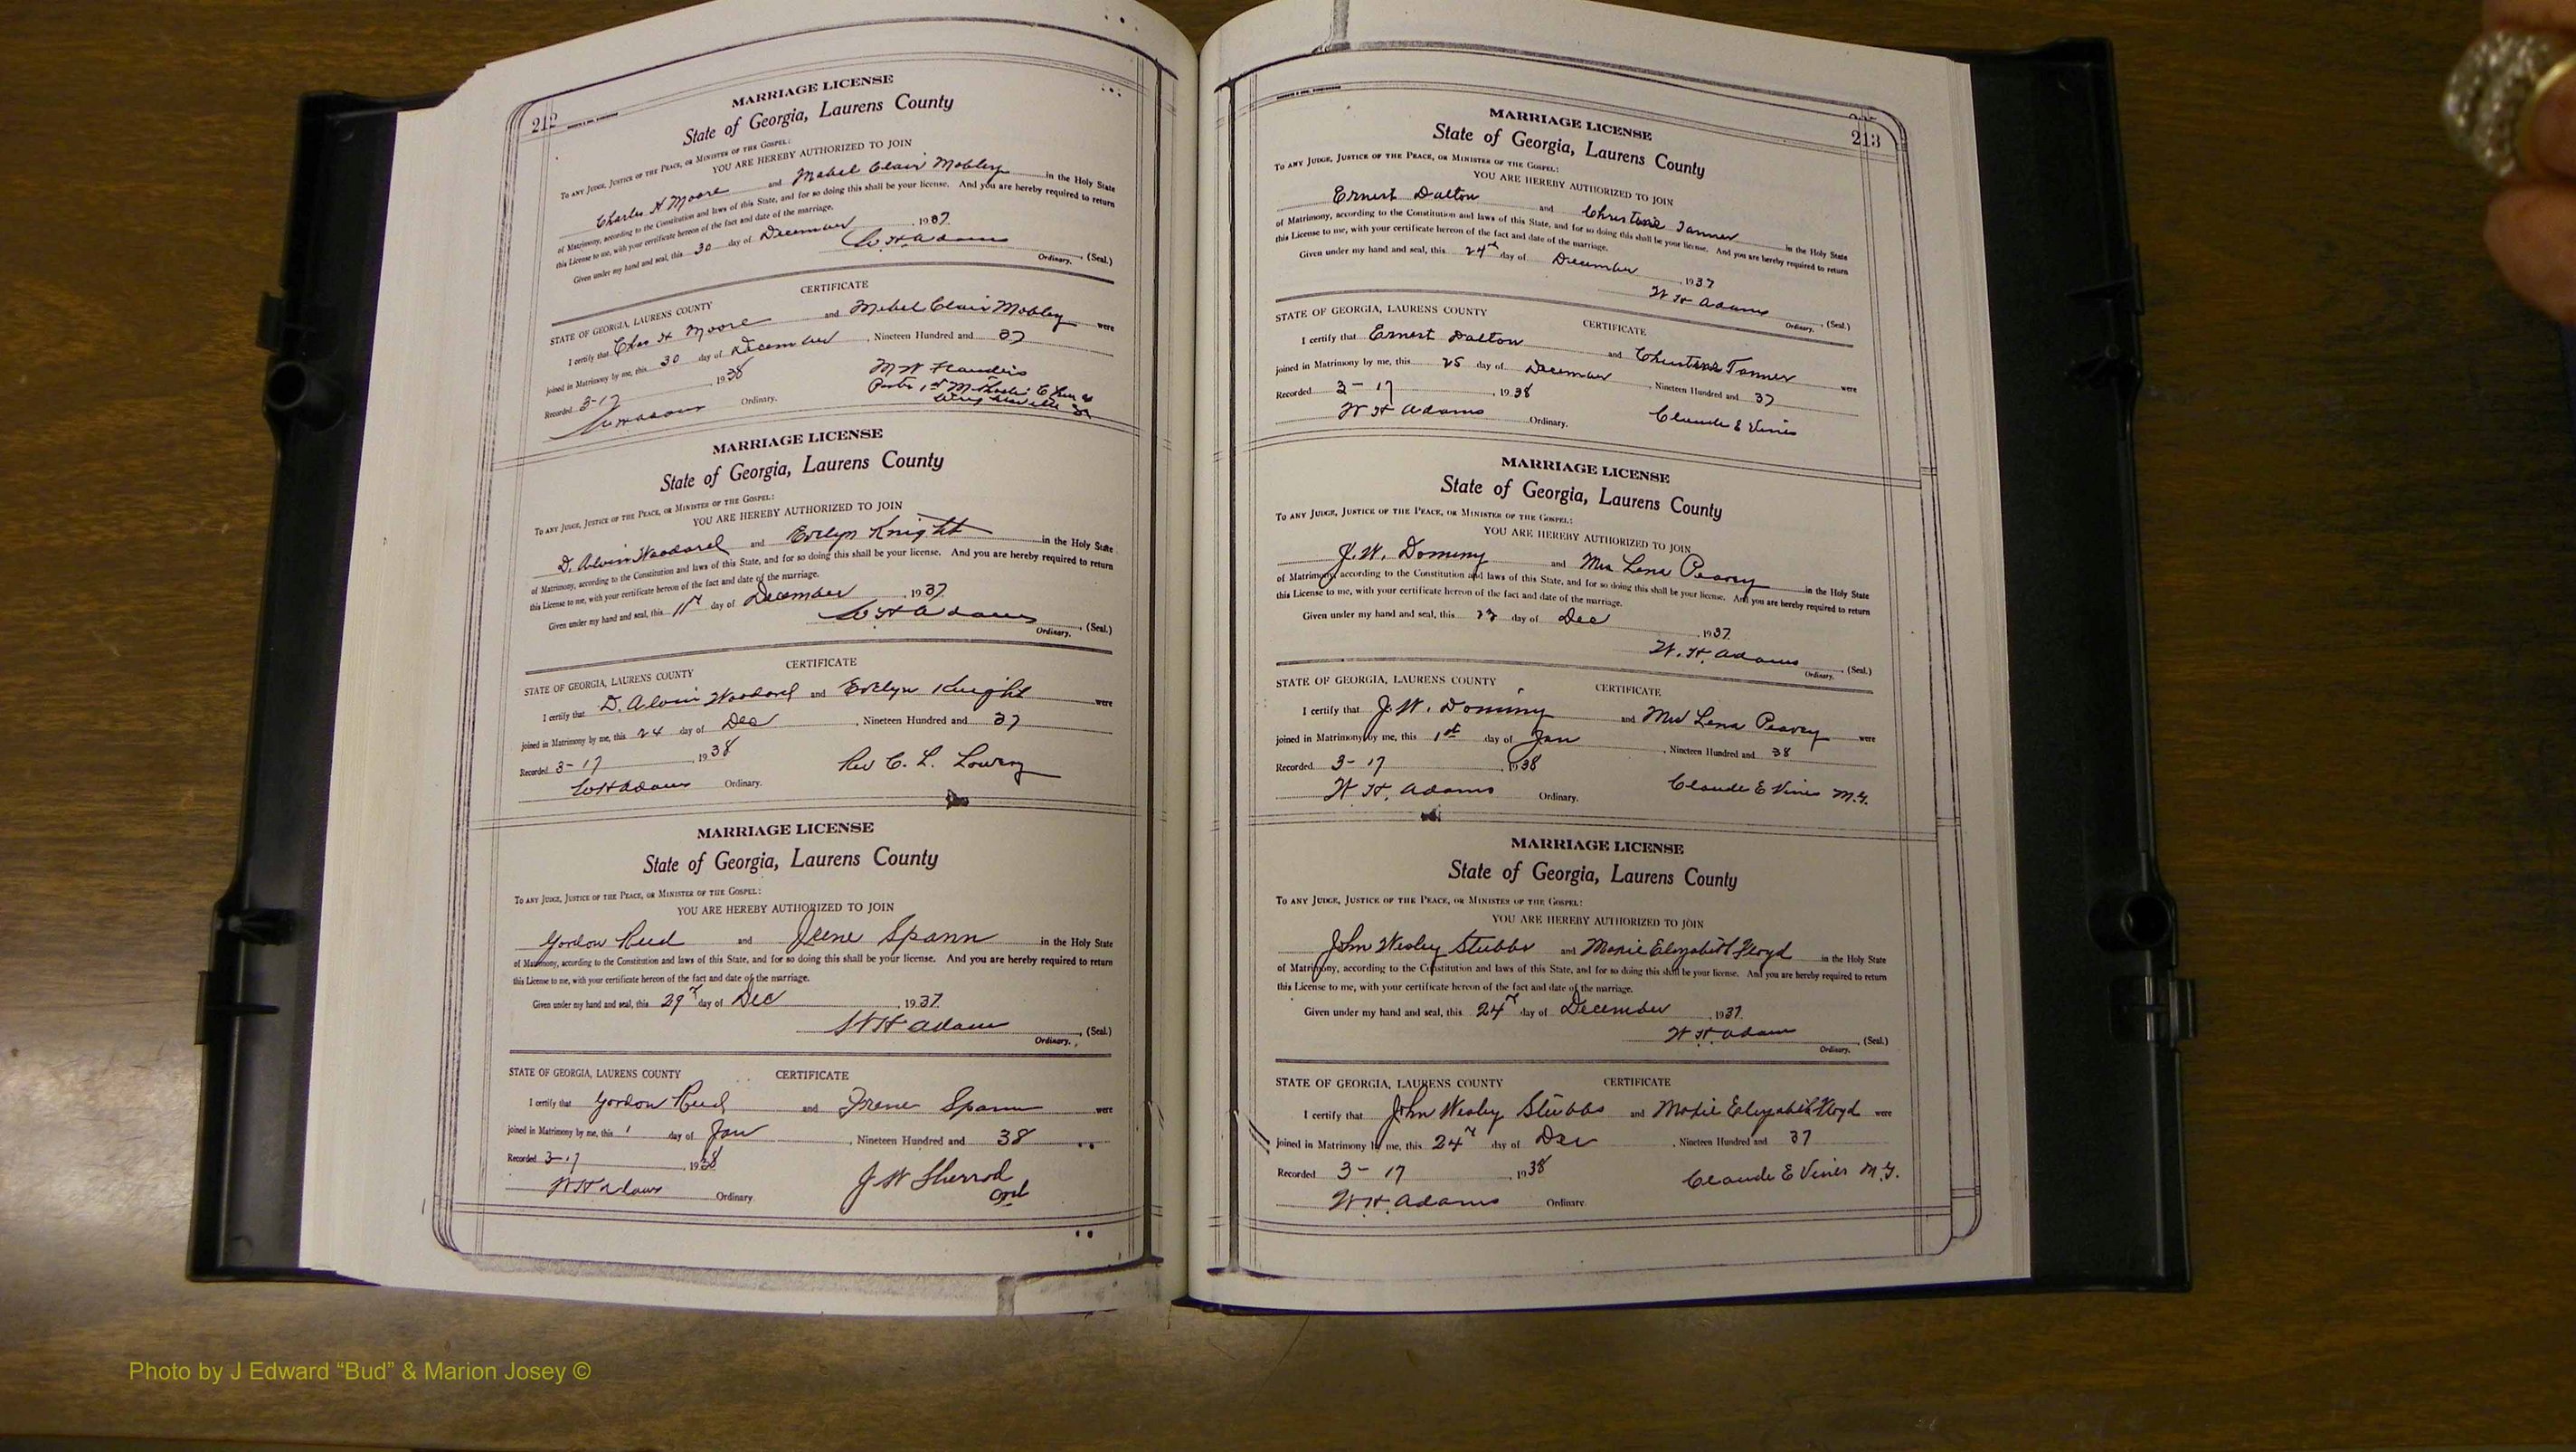 212
MARRIAGE LICENSE
State of Georgia, Laurens County
To any Judge, Justice of the Peace, or Minister of the Gospel:
YOU ARE HEREBY AUTHORIZED TO JOIN
Charles H Moore and Mabel Clair Mobley in the Holy State
of Matrimony, according to the Constitution and laws of this State, and for so doing this shall be your license. And you are hereby required to return
this License to me, with your certificate hereon of the fact and date of the marriage.
Given under my hand and seal, this 30 day of December, 1937.
W H Adams, (Seal.)
Ordinary.
CERTIFICATE
STATE OF GEORGIA, LAURENS COUNTY
I certify that Chas H Moore and Mabel Clair Mobley were
joined in Matrimony by me, this 30 day of December, Nineteen Hundred and 37
Recorded 3-17, 1938
M W Flanders
Ordinary.
MARRIAGE LICENSE
State of Georgia, Laurens County
To any Judge, Justice of the Peace, or Minister of the Gospel:
YOU ARE HEREBY AUTHORIZED TO JOIN
D. Alvin Woodard and Evelyn Knight in the Holy State
of Matrimony, according to the Constitution and laws of this State, and for so doing this shall be your license. And you are hereby required to return
this License to me, with your certificate hereon of the fact and date of the marriage.
Given under my hand and seal, this 11th day of December, 1937.
W H Adams, (Seal.)
Ordinary.
CERTIFICATE
STATE OF GEORGIA, LAURENS COUNTY
I certify that D. Alvin Woodard and Evelyn Knight were
joined in Matrimony by me, this 24 day of Dec, Nineteen Hundred and 37
Recorded 3-17, 1938
Rev C. L. Lowery
W H Adams Ordinary.
MARRIAGE LICENSE
State of Georgia, Laurens County
To any Judge, Justice of the Peace, or Minister of the Gospel:
YOU ARE HEREBY AUTHORIZED TO JOIN
Gordon Reed and Irene Spann in the Holy State
of Matrimony, according to the Constitution and laws of this State, and for so doing this shall be your license. And you are hereby required to return
this License to me, with your certificate hereon of the fact and date of the marriage.
Given under my hand and seal, this 29th day of Dec, 1937.
W H Adams, (Seal.)
Ordinary.
STATE OF GEORGIA, LAURENS COUNTY CERTIFICATE
I certify that Gordon Reed and Irene Spann were
joined in Matrimony by me, this 1 day of Jan, Nineteen Hundred and 38
Recorded 3-17, 1938
J W Sherrod
W H Adams Ordinary.
213
MARRIAGE LICENSE
State of Georgia, Laurens County
To any Judge, Justice of the Peace, or Minister of the Gospel:
YOU ARE HEREBY AUTHORIZED TO JOIN
Ernest Dalton and Tanner in the Holy State
of Matrimony, according to the Constitution and laws of this State, and for so doing this shall be your license. And you are hereby required to return
this License to me, with your certificate hereon of the fact and date of the marriage.
Given under my hand and seal, this 24th day of December, 1937
W H Adams, (Seal.)
Ordinary.
STATE OF GEORGIA, LAURENS COUNTY CERTIFICATE
I certify that Ernest Dalton and Tanner were
joined in Matrimony by me, this 25 day of December, Nineteen Hundred and 37
Recorded 3-17, 1938
W H Adams Ordinary. Claude E Vines
MARRIAGE LICENSE
State of Georgia, Laurens County
To any Judge, Justice of the Peace, or Minister of the Gospel:
YOU ARE HEREBY AUTHORIZED TO JOIN
J. W. Dominy and Mrs Lena Peavey in the Holy State
of Matrimony, according to the Constitution and laws of this State, and for so doing this shall be your license. And you are hereby required to return
this License to me, with your certificate hereon of the fact and date of the marriage.
Given under my hand and seal, this day of Dec, 1937.
W. H. Adams, (Seal.)
Ordinary.
STATE OF GEORGIA, LAURENS COUNTY CERTIFICATE
I certify that J. W. Dominy and Mrs Lena Peavey were
joined in Matrimony by me, this 1st day of Jan, Nineteen Hundred and 38
Recorded 3-17, 1938
W. H. Adams Ordinary. Claude E Vines M.G.
MARRIAGE LICENSE
State of Georgia, Laurens County
To any Judge, Justice of the Peace, or Minister of the Gospel:
YOU ARE HEREBY AUTHORIZED TO JOIN
John Wesley Stubbs and Elizabeth Floyd in the Holy State
of Matrimony, according to the Constitution and laws of this State, and for so doing this shall be your license. And you are hereby required to return
this License to me, with your certificate hereon of the fact and date of the marriage.
Given under my hand and seal, this 24th day of December, 1937.
W. H. Adams, (Seal.)
Ordinary.
STATE OF GEORGIA, LAURENS COUNTY CERTIFICATE
I certify that John Wesley Stubbs and Elizabeth Floyd were
joined in Matrimony by me, this 24th day of Dec, Nineteen Hundred and 37
Recorded 3-17, 1938
Claude E Vines M.G.
W. H. Adams Ordinary.
Photo by J Edward “Bud” & Marion Josey ©